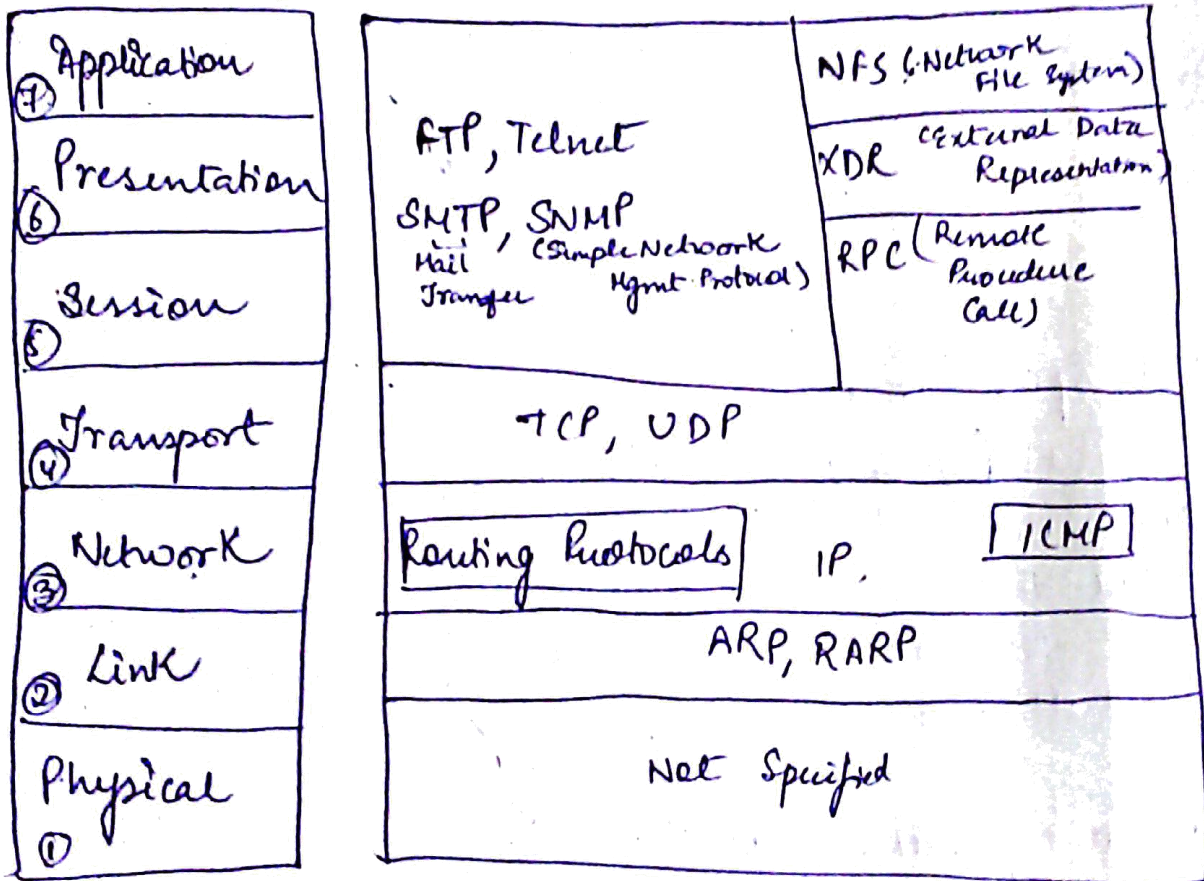 Application
7
Presentation
6
Session
5
Transport
4
Network
3
Link
2
Physical
1
FTP, Telnet
SMTP, SNMP
Mail
Transfer
(Simple Network
Mgmt. Protocol)
NFS (Network
File System)
XDR (External Data
Representation)
RPC (Remote
Procedure
Call)
TCP, UDP
Routing Protocols
IP.
ICMP
ARP, RARP
Not Specified